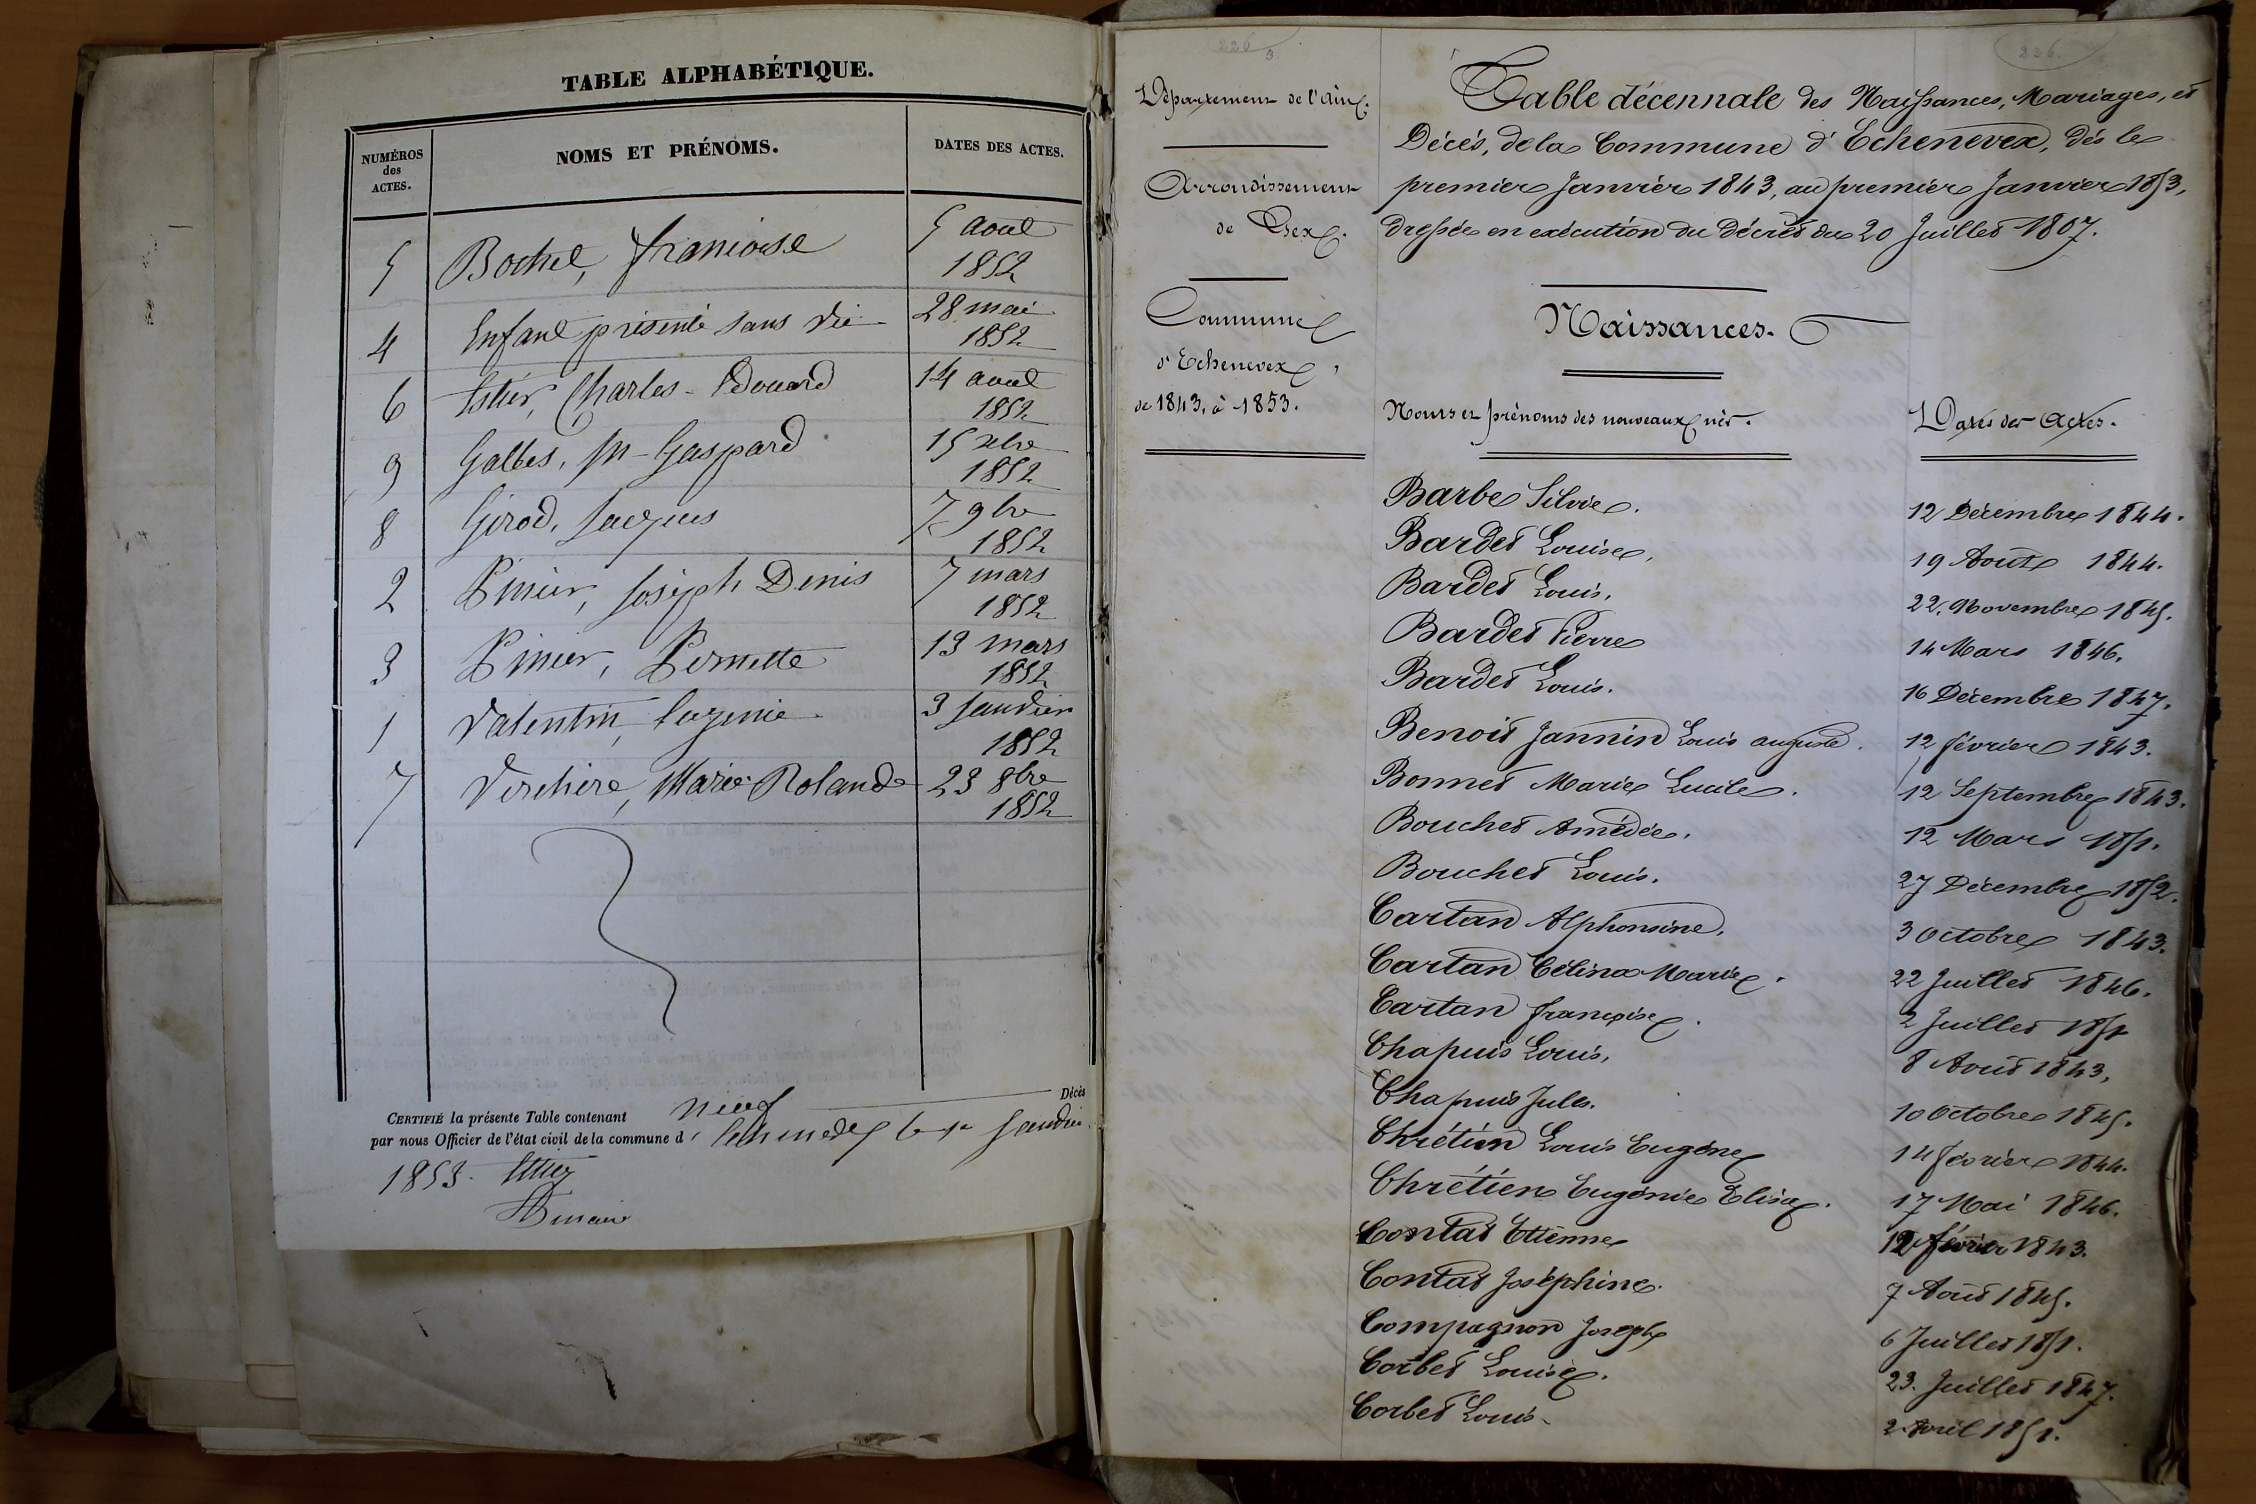 TABLE ALPHABÉTIQUE.
NUMÉROS des ACTES.
NOMS ET PRÉNOMS.
DATES DES ACTES.
5 Bochet, françoise 5 aout 1852
4 Enfant présenté sans vie 28 mai 1852
6 Estier, Charles-Edouard 14 aout 1852
9 Galbes, Gaspard 15 xbre 1852
8 Girod, Jacques 7 9bre 1852
2 Pinier, Joseph Denis 7 mars 1852
3 Pinier, Pernette 13 mars 1852
1 Valentin, Eugenie 3 Janvier 1852
7 Verchère, Marie Rolande 23 8bre 1852
CERTIFIÉ la présente Table contenant neuf Décès
par nous Officier de l'état civil de la commune d' Echenevex le 1er Janvier
1853.
226
236.
Département de l'Ain.
Arrondissement
de Gex.
Commune
d'Echenevex,
de 1843, à 1853.
Table décennale des Naissances, Mariages, et
Décès, de la Commune d'Echenevex, dès le
premier Janvier 1843, au premier Janvier 1853,
dressée en exécution du Décret du 20 Juillet 1807.
Naissances.
Noms et prénoms des nouveaux nés. Dates des Actes.
Barbe Silvie. 12 Décembre 1844.
Bardet Louise, 19 Août 1844.
Bardet Louis, 22. Novembre 1845.
Bardet Pierre 14 Mars 1846.
Bardet Louis. 16 Décembre 1847.
Benoit Jannin Louis auguste. 12 février 1843.
Bonnet Marie Lucile. 12 Septembre 1843.
Bouchet Amédée. 12 Mars 1851.
Bouchet Louis. 27 Décembre 1852.
Cartan Alphonsine. 3 Octobre 1843.
Cartan Célina Marie. 22 Juillet 1846.
Cartan françoise. 2 Juillet 1851
Chapuis Louis, 8 Août 1843,
Chapuis Jules. 10 Octobre 1845.
Chrétien Louis Eugène 14 février 1844.
Chrétien Eugénie Elisa. 17 Mai 1846.
Contat Etienne 12 février 1843.
Contat Joséphine. 7 Août 1845.
Compagnon Joseph 6 Juillet 1851.
Corbet Louise. 23. Juillet 1847.
Corbet Louis. 2 Avril 1851.